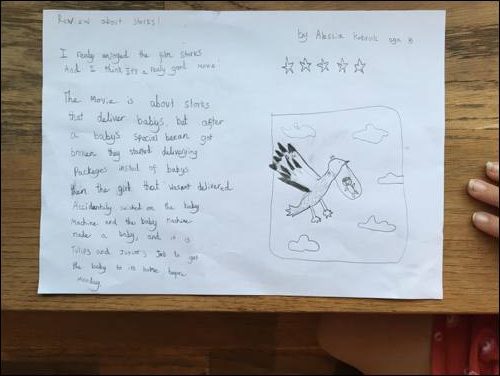 Review about storks!
by Alessia
age 8
I really enjoyed the film storks
And I think It's a really good movie
The Movie is about storks
that deliver babys but after
a babys special becan got
broken they started delivering
Packages insted of babys
then the girl that wasent delivered
Accidentely switched on the baby
Machine and the baby machine
made a baby, and it is
Tulips and Juniors Job to get
the baby to its home before
Monday